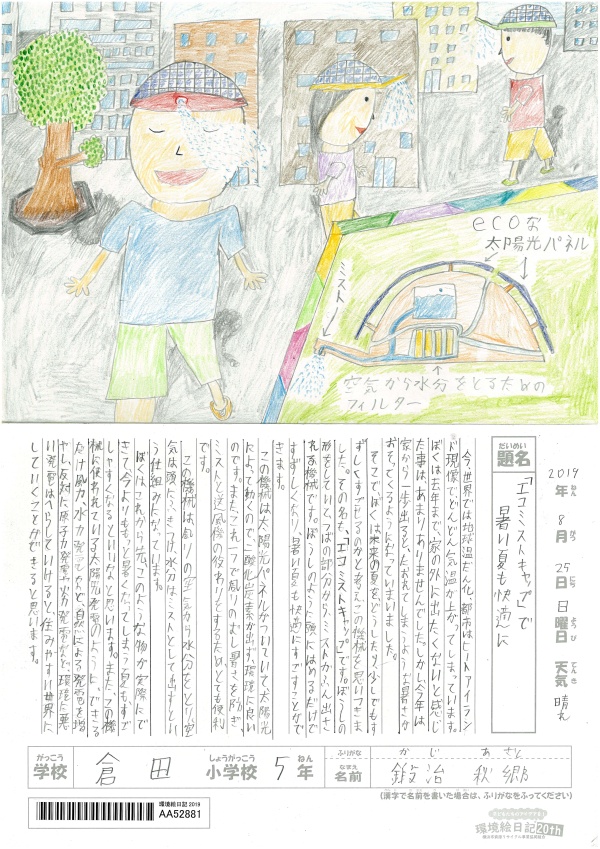 ecoな
太陽光パネル
ミスト
空気から水分をとるための
フィルター
だいめい
題名
「エコミストキャップ」で
暑い夏も快適に
2019年 8月 25日 日曜日 天気 晴れ
ねん がつ にち ようび てんき
今、世界では地球温だん化、都市はヒートアイラン
ド現像で、どんどん気温が上がってしまっています。
ぼくは去年まで家の外に出たくないと感じ
た事は、あまりありませんでした。しかし、今年は
家から一歩出ると、たおれてしまうような暑さが
おそってくるようになっていまいました。
そこでぼくは未来の夏をどうしたら少しでもす
ずしくすごせるのかと考え、この機械を思いつきま
した。その名も、「エコミストキャップ」です。ぼうしの
形をしていて、つばの部分から、ミストがふん出さ
れる機械です。ぼうしのように頭にはめるだけで
すずしくなり、暑い夏も快適にすごすことがで
きます。
この機械は太陽光パネルがついていて太陽光
によって動くので、二酸化炭素が出ず、環境に良い
のです。また、これ一つで風のむし暑さを防ぎ、
ミストと送風機の役わりをするため、とても便利
です。
この機械は周りの空気から水分をとり、空
気は頭にふきつけ、水分はミストとして出すとい
う仕組みになっています。
ぼくはこれから先、このような物が実際にで
きて、今よりももっと暑くなってしまう夏も、すご
しやすくなるといいなと思います。また、この機
械に使われている太陽光発電のように、できる
だけ風力、水力発電などの自然による発電を増
やし、反対に原子力発電や火力発電など、環境に悪
い発電はへらしていけると、住みやすい世界に
していくことができると思います。
がっこう しょうがっこう ねん
学校 倉田 小学校 5年
ふりがな かじ あさと
なまえ
名前 鍛治 秋郷
(漢字で名前を書いた場合は、ふりがなをふってください)
環境絵日記 2019
AA52881
環境絵日記 20th